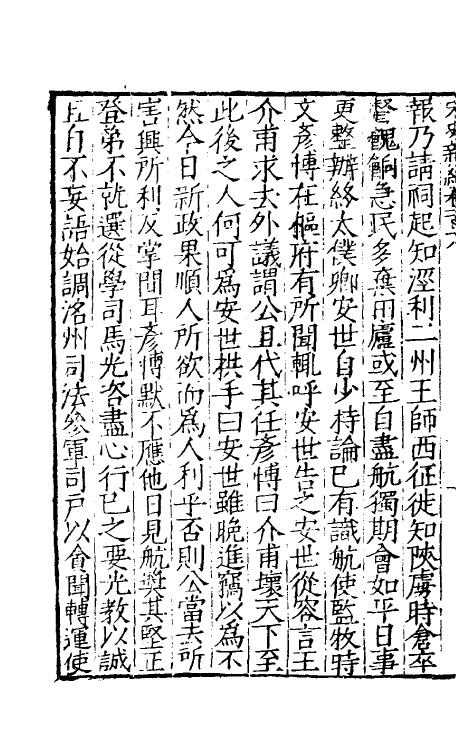 宋史新編卷一百八
報乃請祠起知涇利二州王師西征徙知陜虜時倉卒
督餽餉急民多棄田廬或至自盡航獨期會如平日事
更整辦終太僕卿安世自少持論已有識航使監牧時
文彥博在樞府有所聞輒呼安世告之安世從容言王
介甫求去外議謂公且代其任彥博曰介甫壞天下至
此後之人何可為安世拱手曰安世雖晚進竊以為不
然今日新政果順人所欲而為人利乎否則公當去所
害興所利反掌間耳彥博默不應他日見航獎其堅正
登弟不就選從學司馬光咨盡心行已之要光教以誠
且自不妄語始調洺州司法參軍司戶以貪聞轉運使